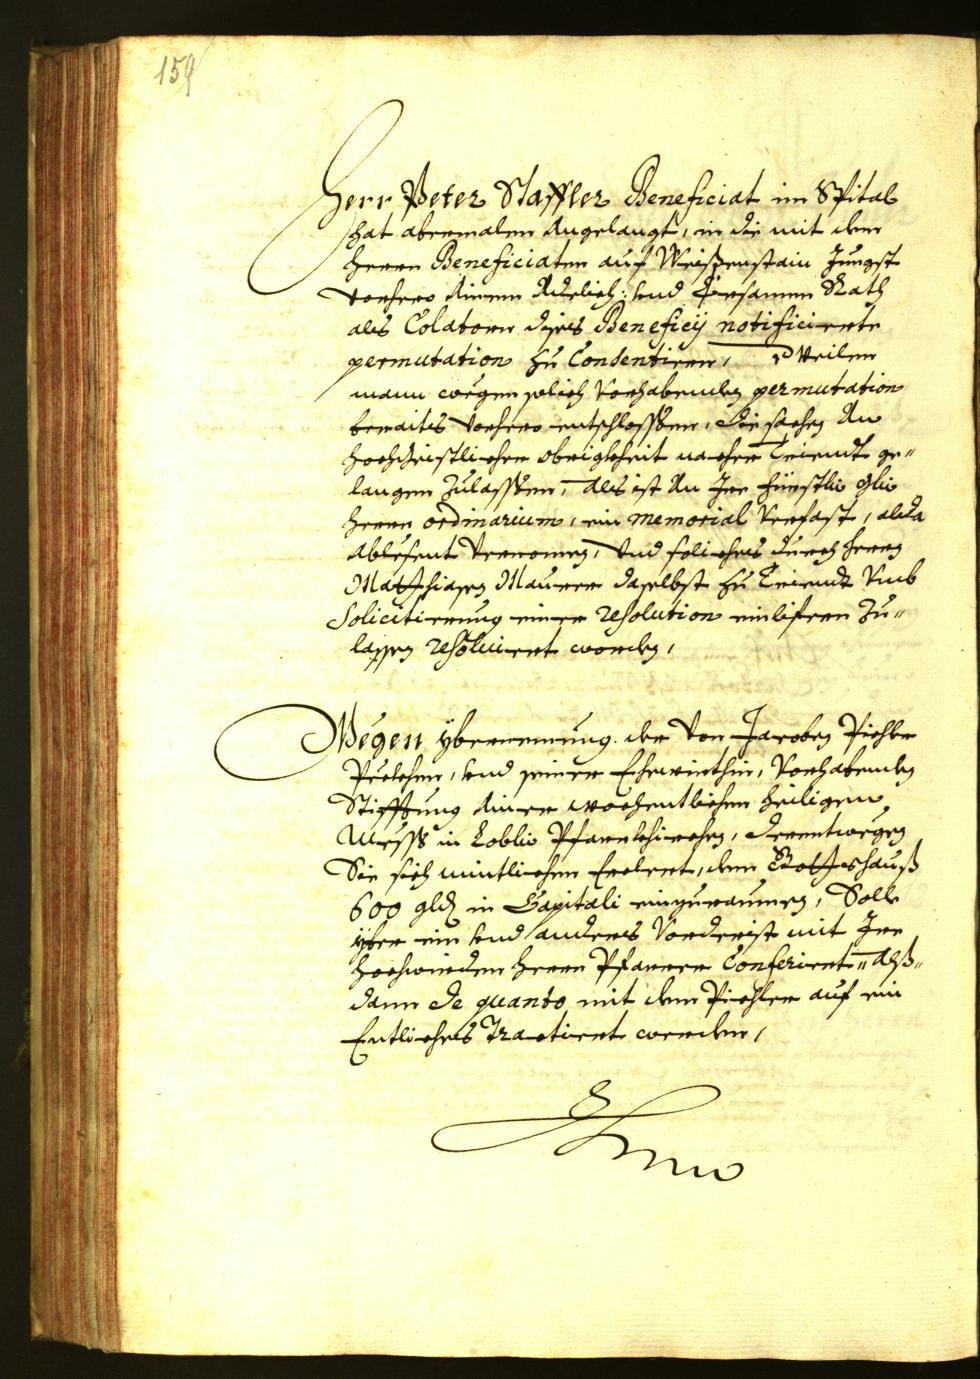 159
Herr Peter Staffler Beneficiat im Spital
hat abermalen angelangt, in die mit dem
herrn Beneficiaten auf Weißenstain Jungst
vorhero ainem Adelich: und Ersamen Rath
als Colatorn dises Beneficij notificierte
permutation zu Consentiren, Weilen
mann wegen solich vorhabenden permutation
beraits vorhero entschlossen, die sachen An
hochgeistlicher obrigkheit nacher Trienndt ge¬
langen zulassen, als ist An Ire Fürstlich Gn
herrn ordinarium, ein memorial Verfast, alda
Ablesent Vernomen, Und soliches durch herrn
Matthiasen Maurer daselbst zu Trienndt Umb
Solicitierung einer resolution einlifern Zu¬
lassen resoluiert worden,
Wegen ybernemung der von Jacoben Pichler
Pulehen, und seiner Ehewirthin, Vorhabenden
Stifftung Ainer wochentlichen heiligen
Mess in Loblich Pfarrkhirchen, derentwegen
Sie sich mintlichen Erclert, dem Gottshauß
600 gld in Capitali einzuraumen, Solle
yber ein und anders Vorderist mit Irr
hochwirden herrn Pfarrer Conferiert, Alß¬
dann de quanto mit dem Pichler auf ein
Entliches Tractiert werden,